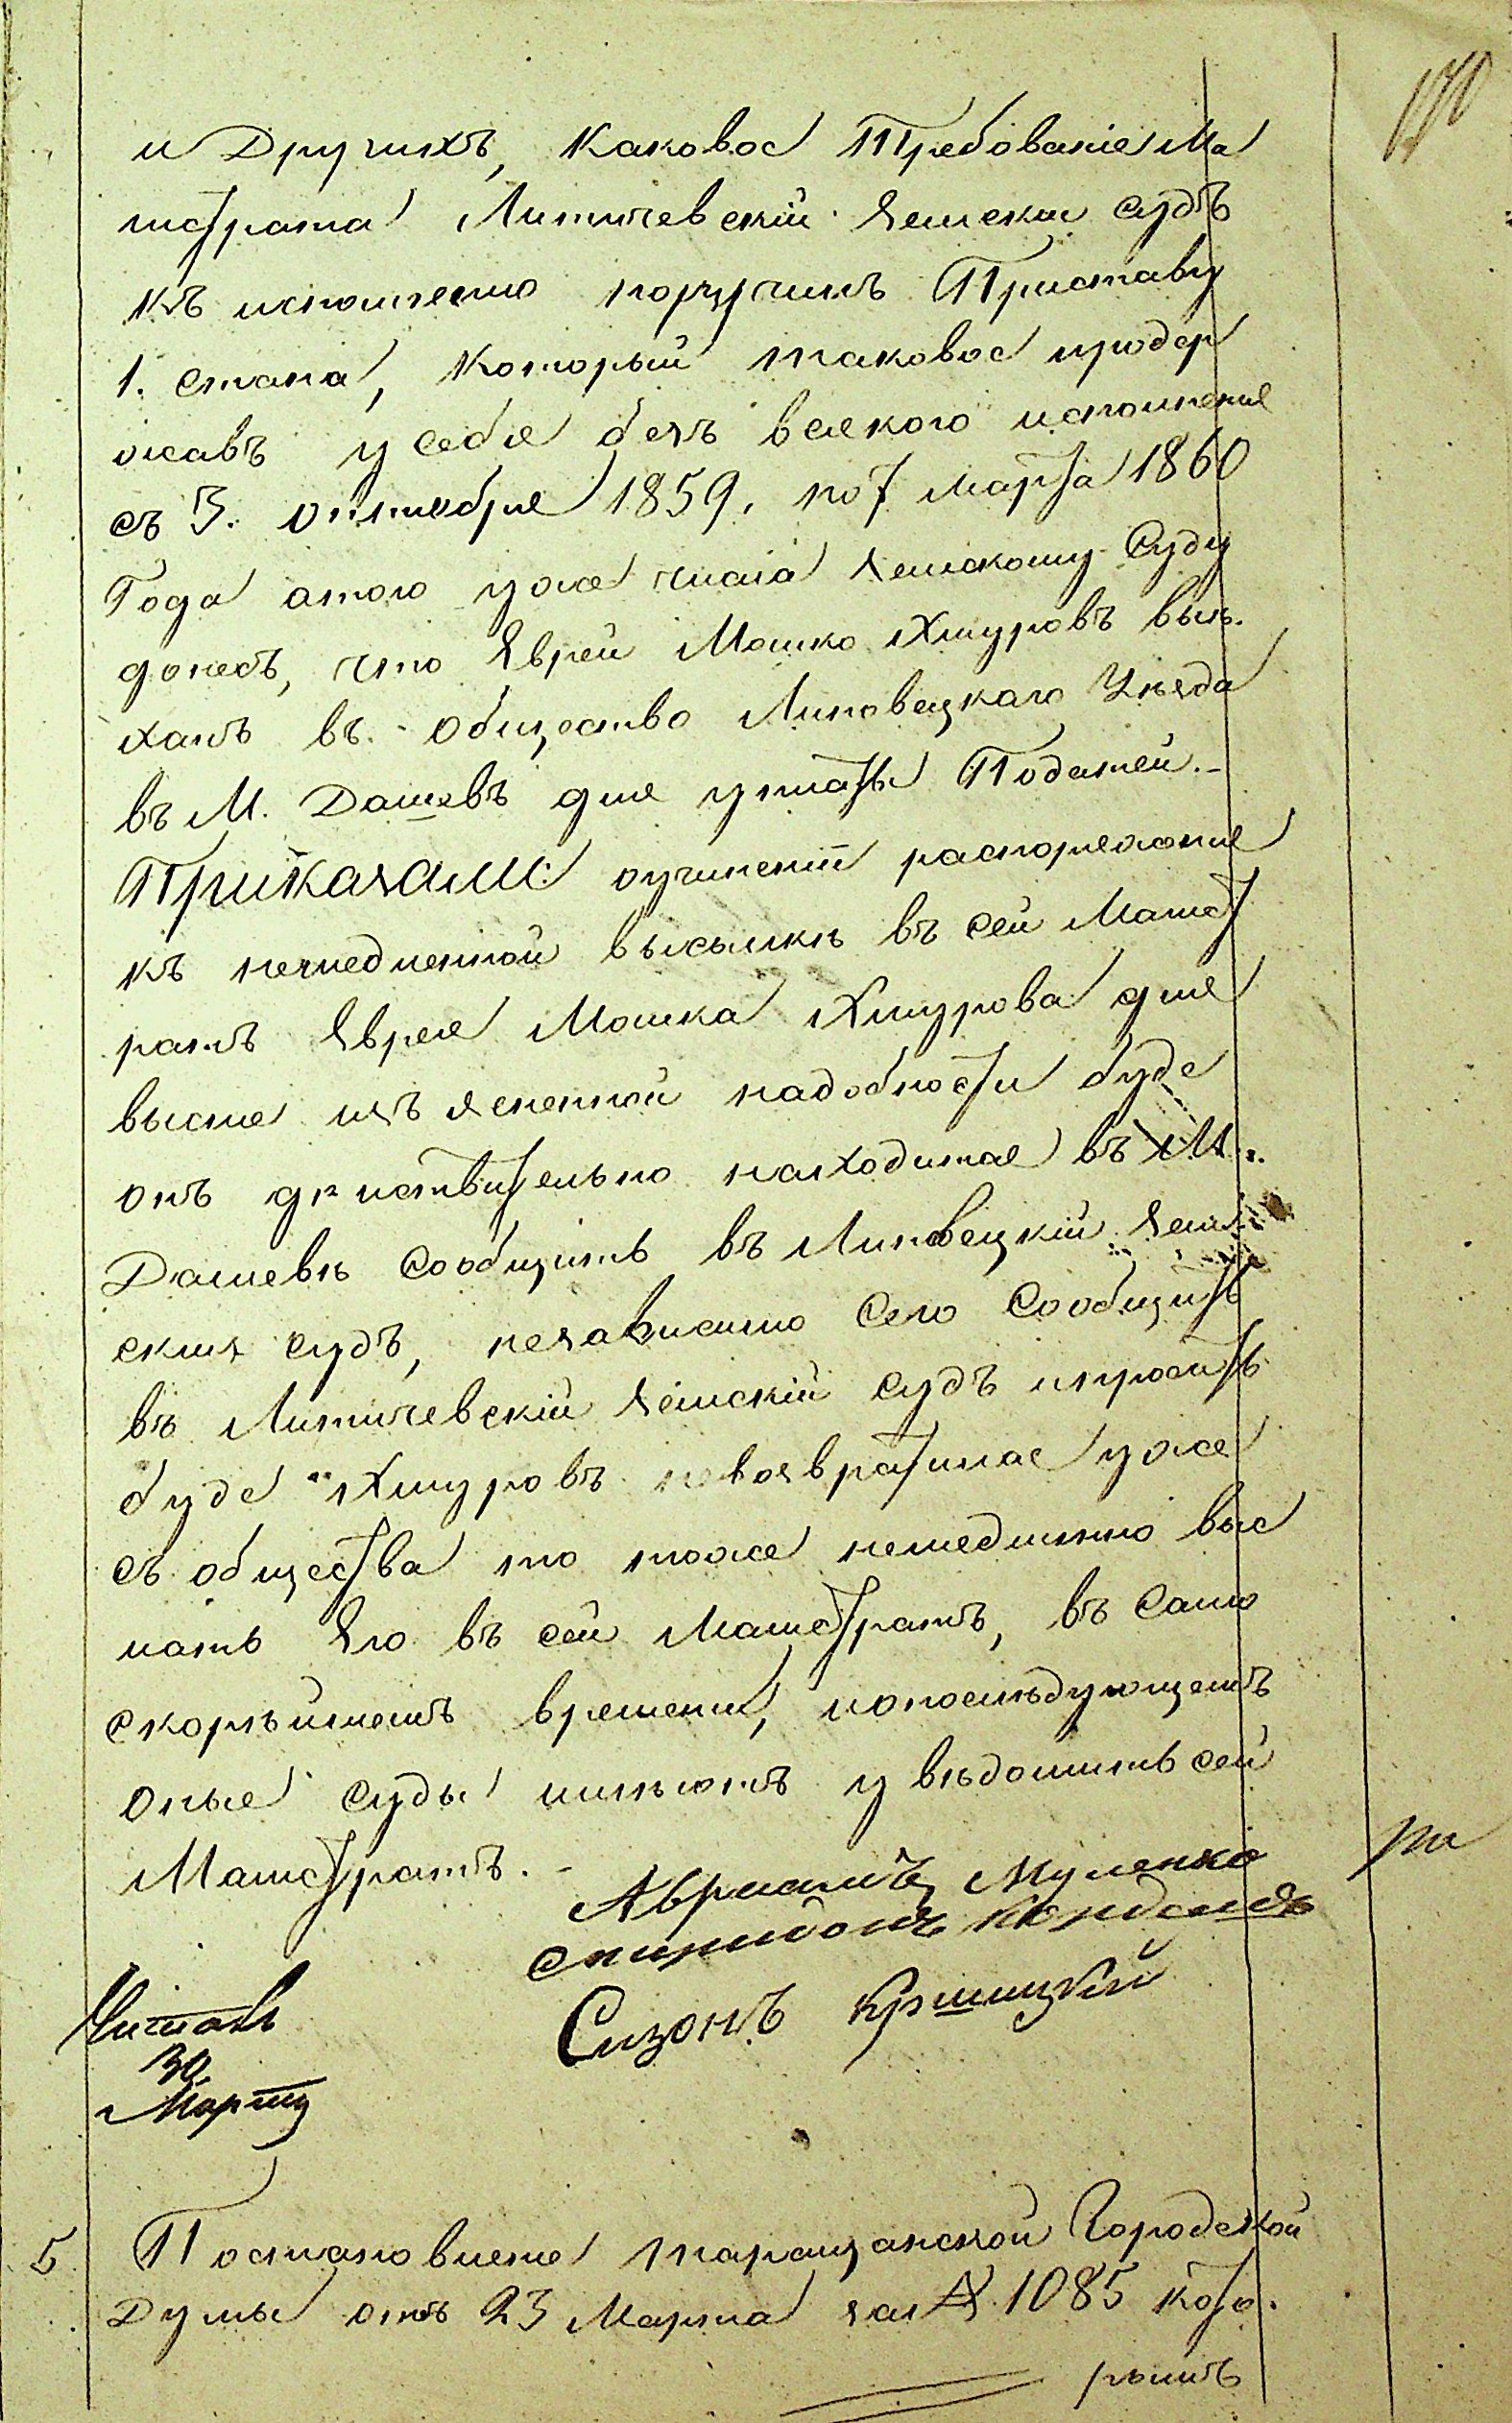 190
и Другихъ, каковое Требованіе Ма
гистрата Литичевскій Земскій Судъ
къ исполненію поручилъ Приставу
1. стана, который таковое продер
жавъ у себя безъ всякого исполненія
съ 3. октября 1859, по 7 марта 1860
Года этого уже числа Земскому Суду
донесъ, что Еврей Мошко Хмуровъ выѣ.
халъ въ общество Липовецкаго Уѣзда
въ М. Дашевъ для уплаты Податей.-
Приказали: оучинить распоряженіе
къ немедленной высылкѣ въ сей Магист
ратъ Еврея Мошка Хмурова для
выше изъясненной надобности буде
онъ дѣйствительно находится въ М.
Дашевѣ сообщить въ Липовецкій Зем
скій судъ, независимо сего сообщить
въ Литичевскій Земскій судъ и просить
буде Хмуровъ невозвратился уже
съ общества то тоже немедленно выс
лать Его въ сей Магистратъ, въ само
скорѣйшемъ времени, и о послѣдующемъ
оные суды имѣютъ увѣдомить сей
Магистратъ. -
Авраамъ
Спиридонъ
Сизонъ Криницкій
Читалъ
30
Марта
5 Постановленіе Таращанской Городской
Думы отъ 23 Марта за № 1085 кото.
рымъ